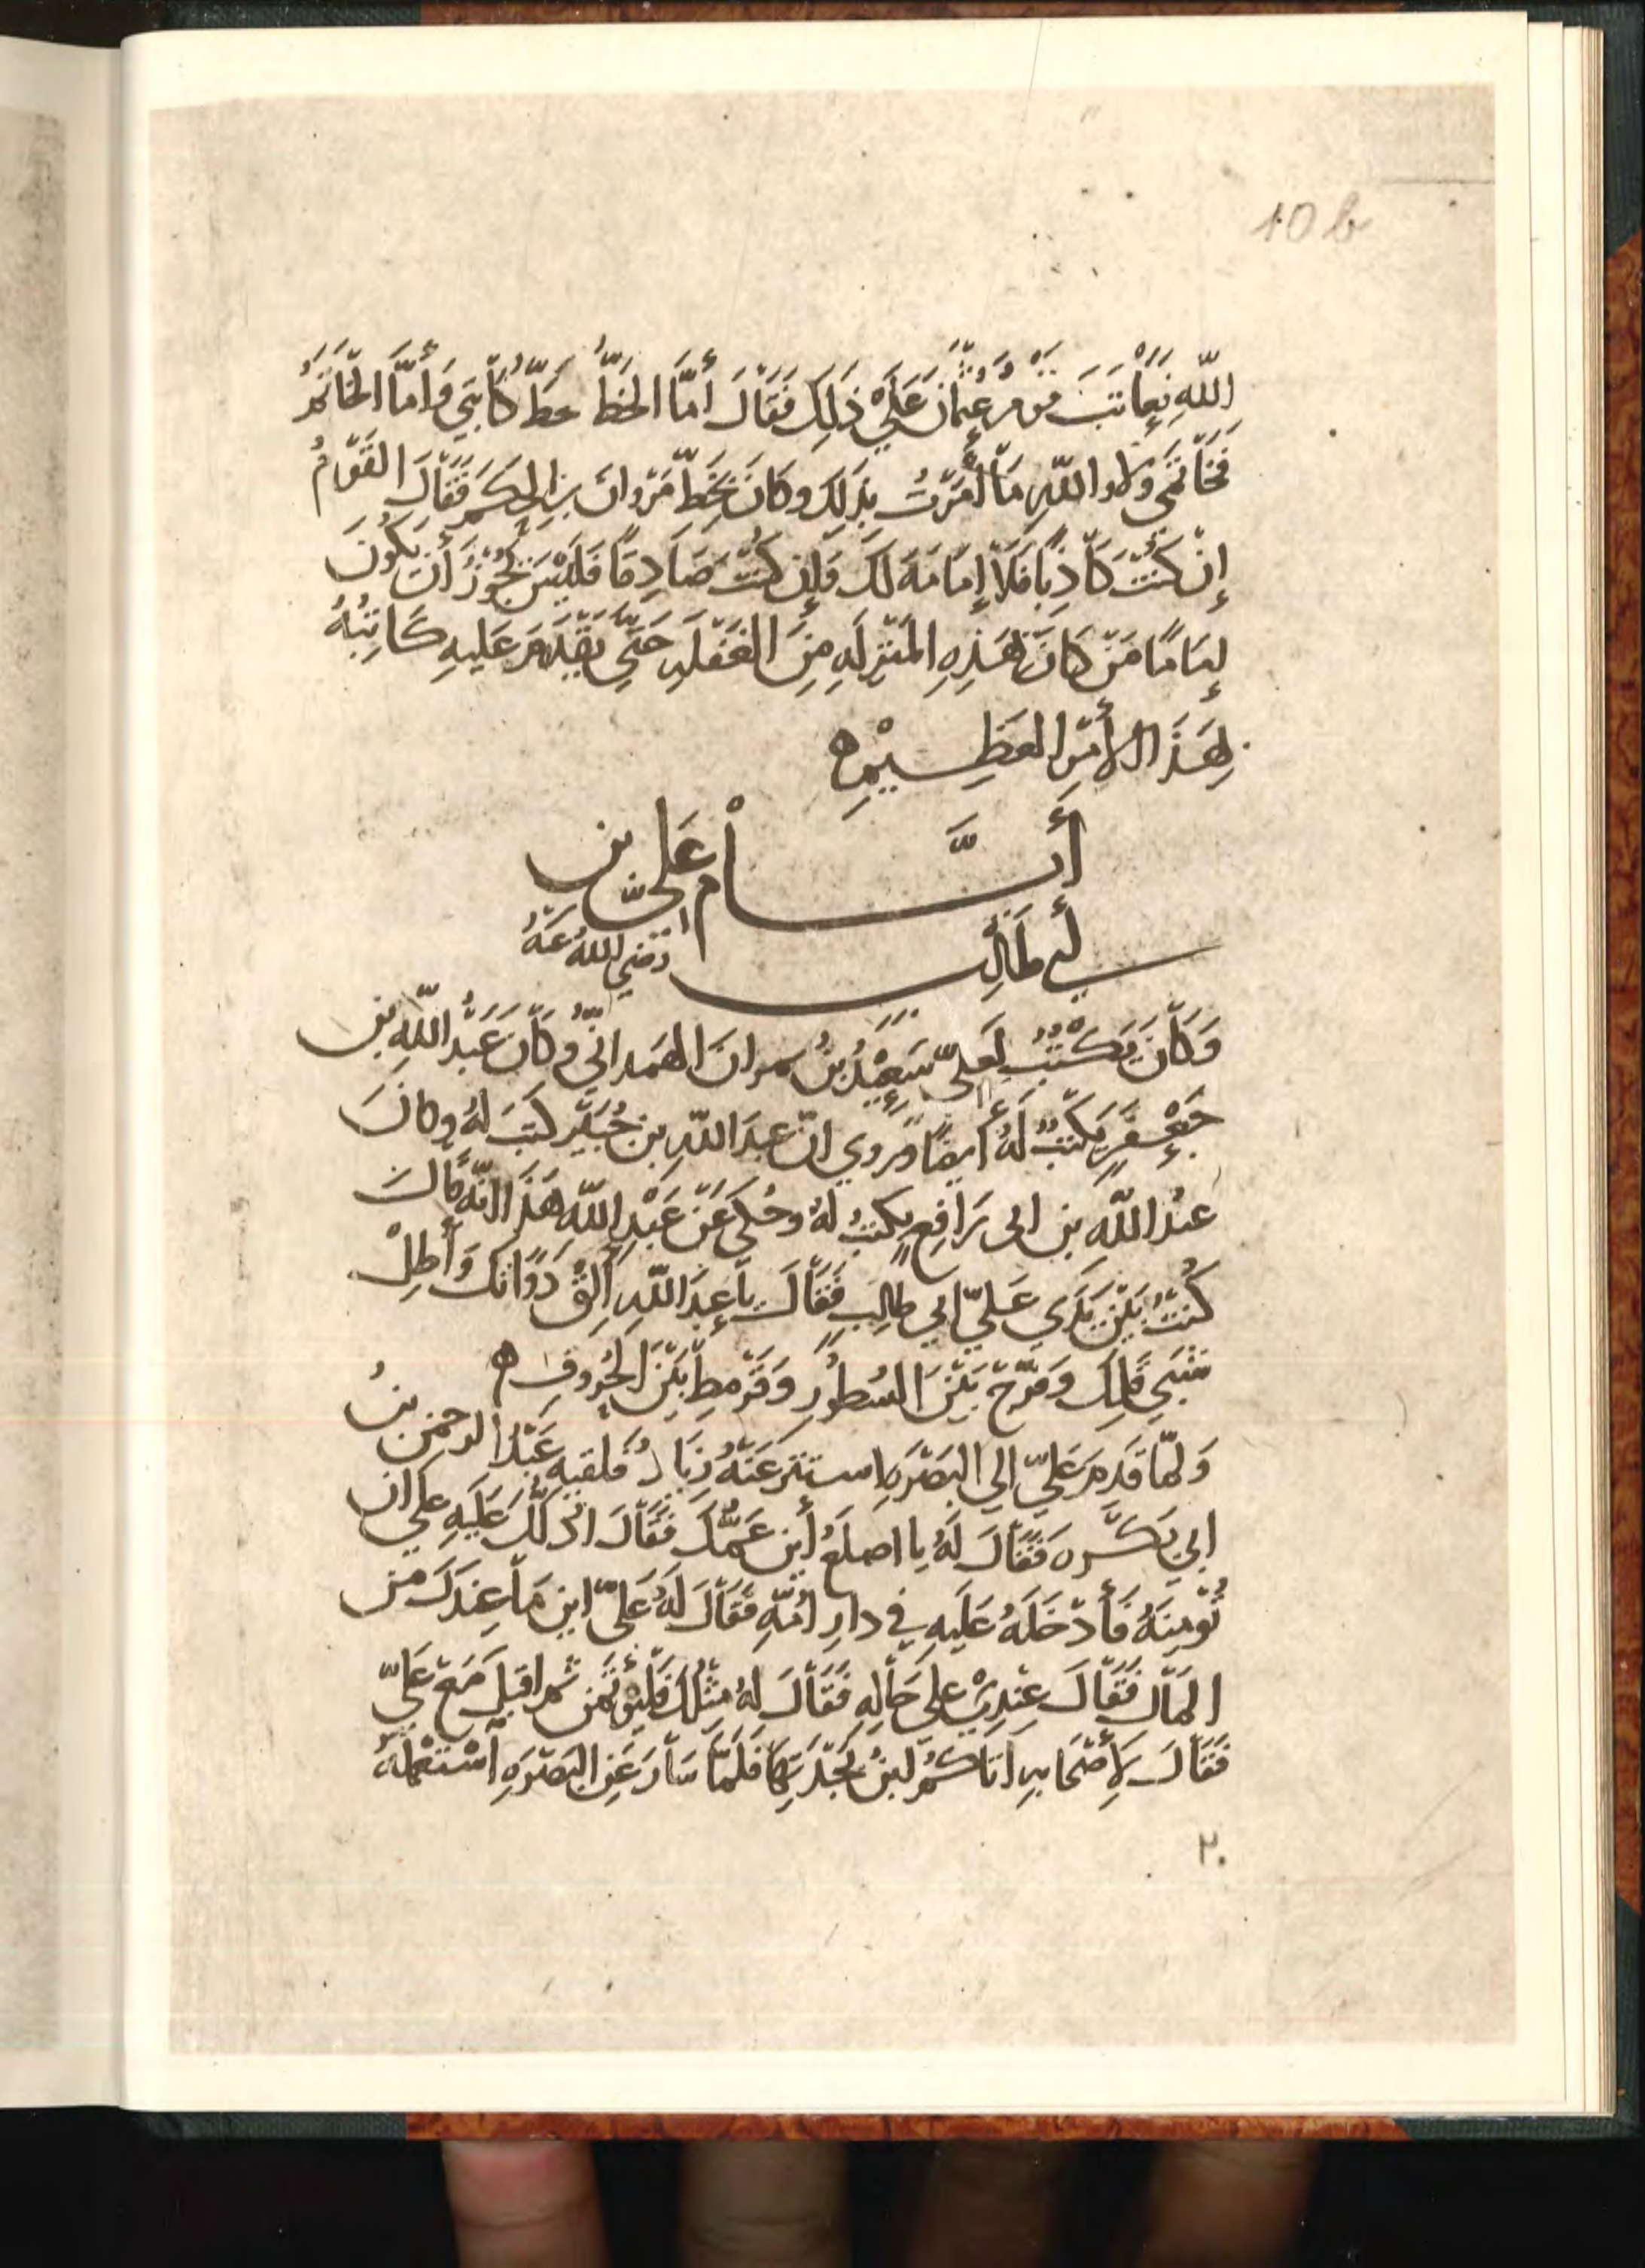 10 b
اللَّهِ فَعَاتَبَ قَوْمٌ عُثْمَانَ عَلَى ذَلِكَ فَقَالَ أَمَّا الخَطُّ خَطُّ كَاتِبِي وَأَمَّا الخَاتَمُ
فَخَاتَمِي وَلَا وَاللَّهِ مَا أَمَرْتُ بِذَلِكَ وَكَانَ بِخَطِّ مَرْوَانَ بنِ الحَكَمِ فَقَالَ القَوْمُ
إِنْ كُنْتَ كَاذِبًا فَلَا إِمَامَةَ لَكَ وَإِنْ كُنْتَ صَادِقًا فَلَيْسَ يَجُوزُ أَنْ يَكُونَ
إِمَامًا مَنْ كَانَ بِهَذِهِ المَنْزِلَةِ مِنَ الغَفْلَةِ حَتَّى يُقْدِمَ عَلَيهِ كَاتِبُهُ
بِهَذَا الأَمْرِ العَظِيْمِ ه
أَيَّامُ عَلِيِّ بنِ
أَبِي طَالِبٍ رَضِيَ اللَّهُ عَنْهُ
وَكَانَ يَكْتُبُ لِعَلِيٍّ سَعِيْدُ بنُ نمرانَ الهَمداني وَكَانَ عَبْدُ اللَّهِ بن
جَعْفَرٍ يَكْتُبُ لَهُ أَيضًا وَرُوِيَ انّ عبدَ اللّهِ بن جُبَيْرٍ كَتَبَ لهُ وكانَ
عبدُ اللَّه بن ابى رَافِعٍ يكتبُ لهُ وحُكِيَ عَنْ عَبْدِ اللَّهِ هَذَا انّه قَالَ
كُنْتُ بَيْنَ يَدَي عَلِيّ ابي طالِبٍ فَقَالَ يا عبدَ اللَّهِ أَلِقْ دَوَاتَكَ وَأَطِلْ
شَبَى قَلمِكَ وَفَرِّجْ بَيْنَ السُطُورِ وَقَرْمِطْ بَيْنَ الحُرُوفِ ه
وَلمّا قَدِمَ عَلِيّ إلي البَصْرَةِ استتر عَنْهُ زِيَادٌ فلقيه عَبْدُ الرحمن بنُ
ابي بَكْرَه فَقَالَ لَهُ يا اصلَعُ أَين عَمُّكَ فَقَالَ ادُلّكَ عَلَيهِ على ان
تُؤْمِنَهُ فَأَدْخَلَهُ عَلَيهِ في دارِ أُمِّهِ فَقَالَ لَهُ عَلِيّ اين مَا عِندَكَ من
المَال فَقَالَ عِنْدِيْ على حَالِهِ فَقَالَ لهُ مِثْلُكَ فَلْيُؤْتَمَن ثم اقبل مَعَ عَلِيّ
فَقَالَ لِأَصْحَابِهِ اتَاكُم ابنُ بَجْدَتِهَا فَلَمَّا سَارَ عَنِ البَصْرَةِ اسْتَعْمَلَهُ
٢٠